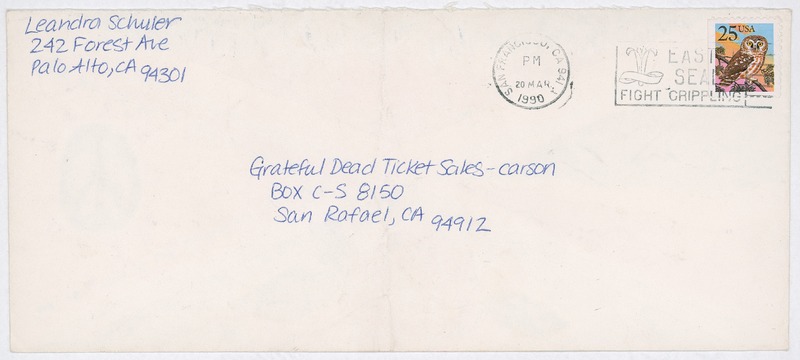 Leandra Schuler
242 Forest Ave
Palo Alto, CA 94301
SAN FRANCISCO, CA 941
PM
20 MAR
1990
EAST
SEAL
FIGHT CRIPPLING
25 USA
Grateful Dead Ticket Sales - carson
BOX C-S 8150
San Rafael, CA 94912